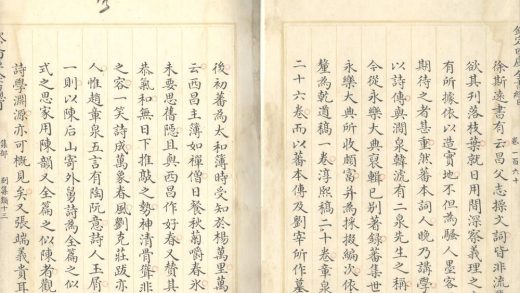 卷一百六十
徐斯遠書有云昌父志操文詞皆非流輩
欲其刋落枝葉就日用間深察義理之
有所據依以造實地不但為騷人墨客
期待之者甚重然蕃本詞人晚乃講學
以詩傳與澗泉韓淲有二泉先生之稱
今從永樂大典裒輯已别著錄蕃集世
永樂大典所收頗富并為採掇編次依
釐為乾道稿一卷淳熙稿二十卷章泉
二十六卷而以蕃本傳及劉宰所作墓
後初蕃為太和簿時受知於楊萬里萬
云西昌主簿如禪僧日餐秋菊嚼春氷
未要思舊隠且與西昌作好春又贊其
恭氣和無日下推敲之勢神清骨聳非
之容一笑詩成萬象春風劉克莊跋亦
人惟趙章泉五言有陶阮意詩人玉屑
一則以陳后山寄外舅詩為全篇之似
式之思家用陳韻又全篇之似陳者觀
詩學淵源亦可概見矣又張端義貴耳
集部 别集類十三